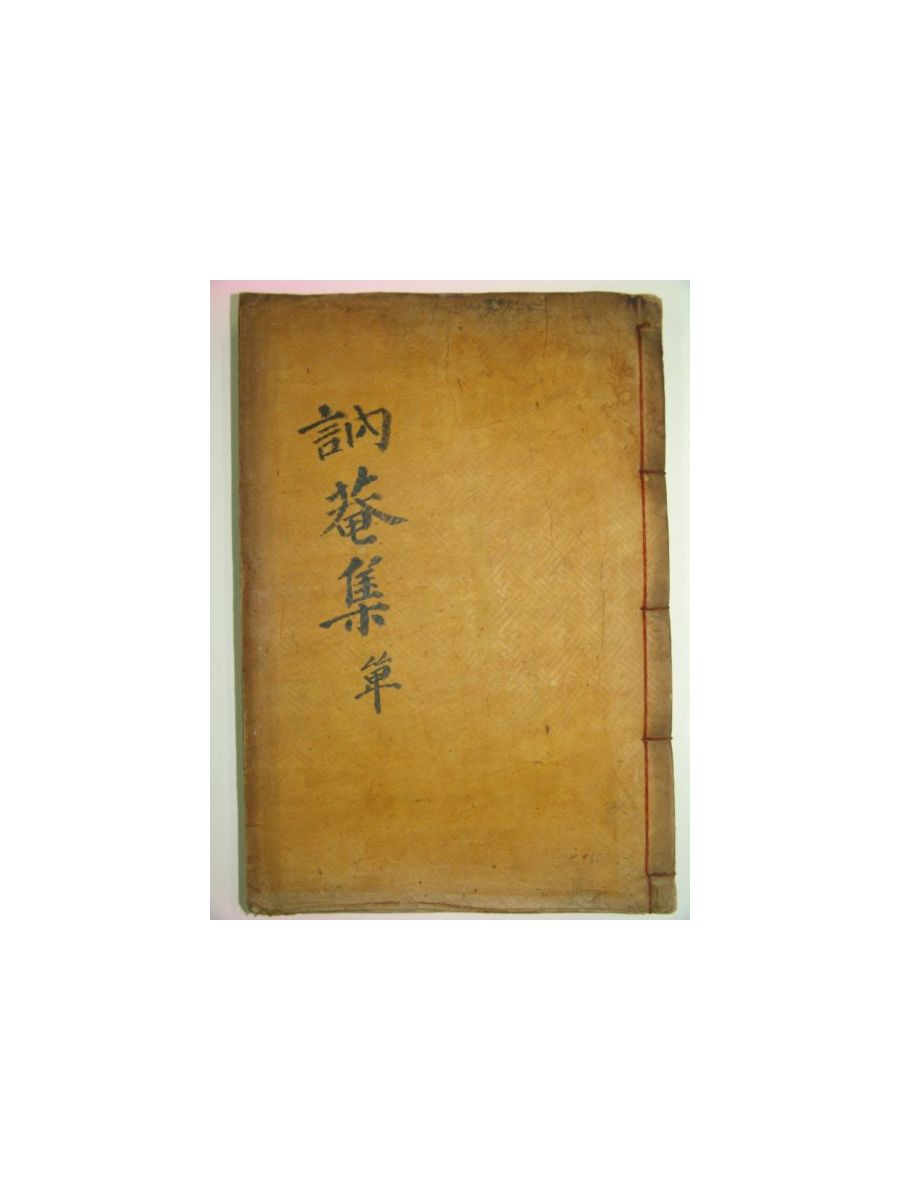 訥菴集 單